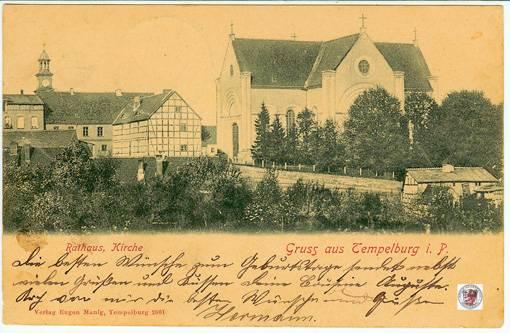 Rathaus, Kirche
Gruss aus Tempelburg i. P.
Die besten Wünsche zum Geburtstage sendet nebst
vielen Grüßen und Küssen Deine Cousine Auguste.
Noch von mir die besten Wünsche und Grüße
Hermann.
Verlag Eugen Manig, Tempelburg 2601